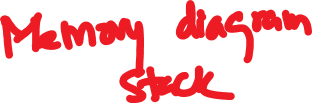 Memory diagram
Stack